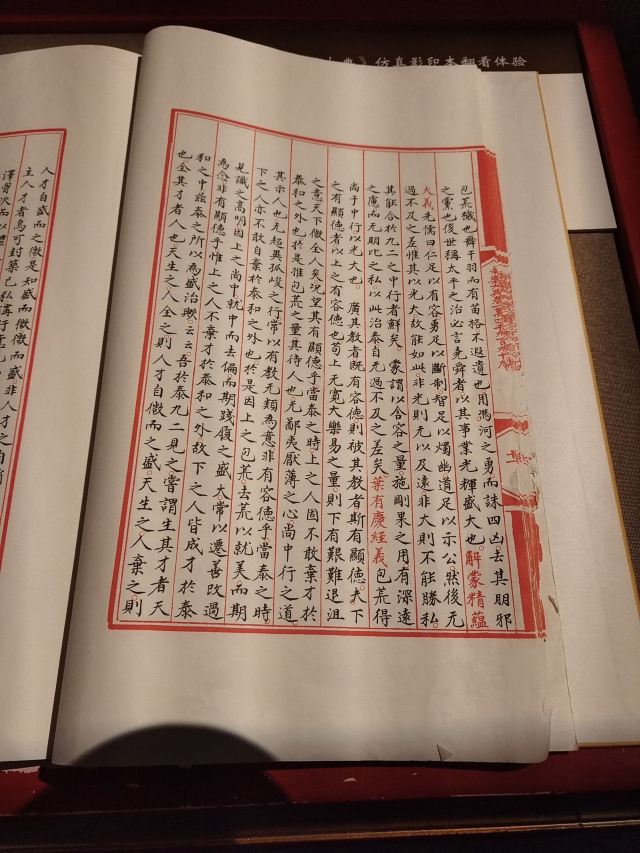 典》仿真影印本翻看体验
包荒穢也舜干羽而有苗格不遐遺也用馮河之勇而誅四凶去其朋邪
之黨也後世稱太平之治必言堯舜者以其事業光輝盛大也解蒙精蘊
大義先儒曰仁足以有容勇足以斷制智足以燭幽道足以示公然後无
過不及之差惟其以光大故能如此非光則无以及遠非大則不能勝私
其能合於九二之中行者鮮矣 蒙謂以含容之量施剛果之用有深遠
之慮而无朋比之私以此治泰自无過不及之差矣葉有慶經義包荒得
尚于中行以光大也 廣其教者既有容德則被其教者斯有顯德夫下
之有顯德者以上之有容德也苟上无寬大樂易之量則下有艱難退沮
之意天下微全人矣况望其有顯德乎當泰之時上之人固不敢棄才於
泰和之外也於是推包荒之量其待人也无鄙夷厭薄之心尚中行之道
其示人也无超異孤峻之行常以有教无類為意非有容德乎當泰之時
下之人亦不敢自棄於泰和之外也於是因上之包荒去荒以就美而期
見識之高明因上之尚中就中而去偏而期踐履之盛大常以遷善改過
為念非有顯德乎惟上之人不棄才於泰和之外故下之人皆成才於泰
和之中玆泰之所以為盛治歟云云吾於泰九二見之嘗謂生其才者天
也全其才者人也天生之人全之則人才自微而之盛天生之人棄之則
人才自盛而之微是知盛而微微而盛非人才之自
主人才者烏可封築已私溝行意